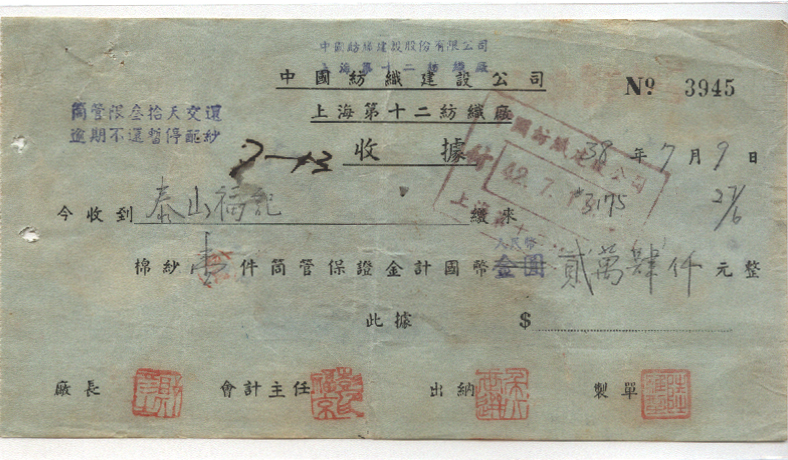 中國紡織建設股份有限公司
上海第十二紡織廠
中國紡織建設公司
Nº 3945
上海第十二紡織廠
筒管限叁拾天交還
逾期不還暫停配紗
收據
38年7月9日
今收到泰山福記繳來
#3175
27/6
棉紗壹件筒管保證金計國幣金圓人民币貳萬肆仟元整
此據 $
廠長 會計主任 出納 製單
中國紡織建設公司
付
42.7.
上海第十二